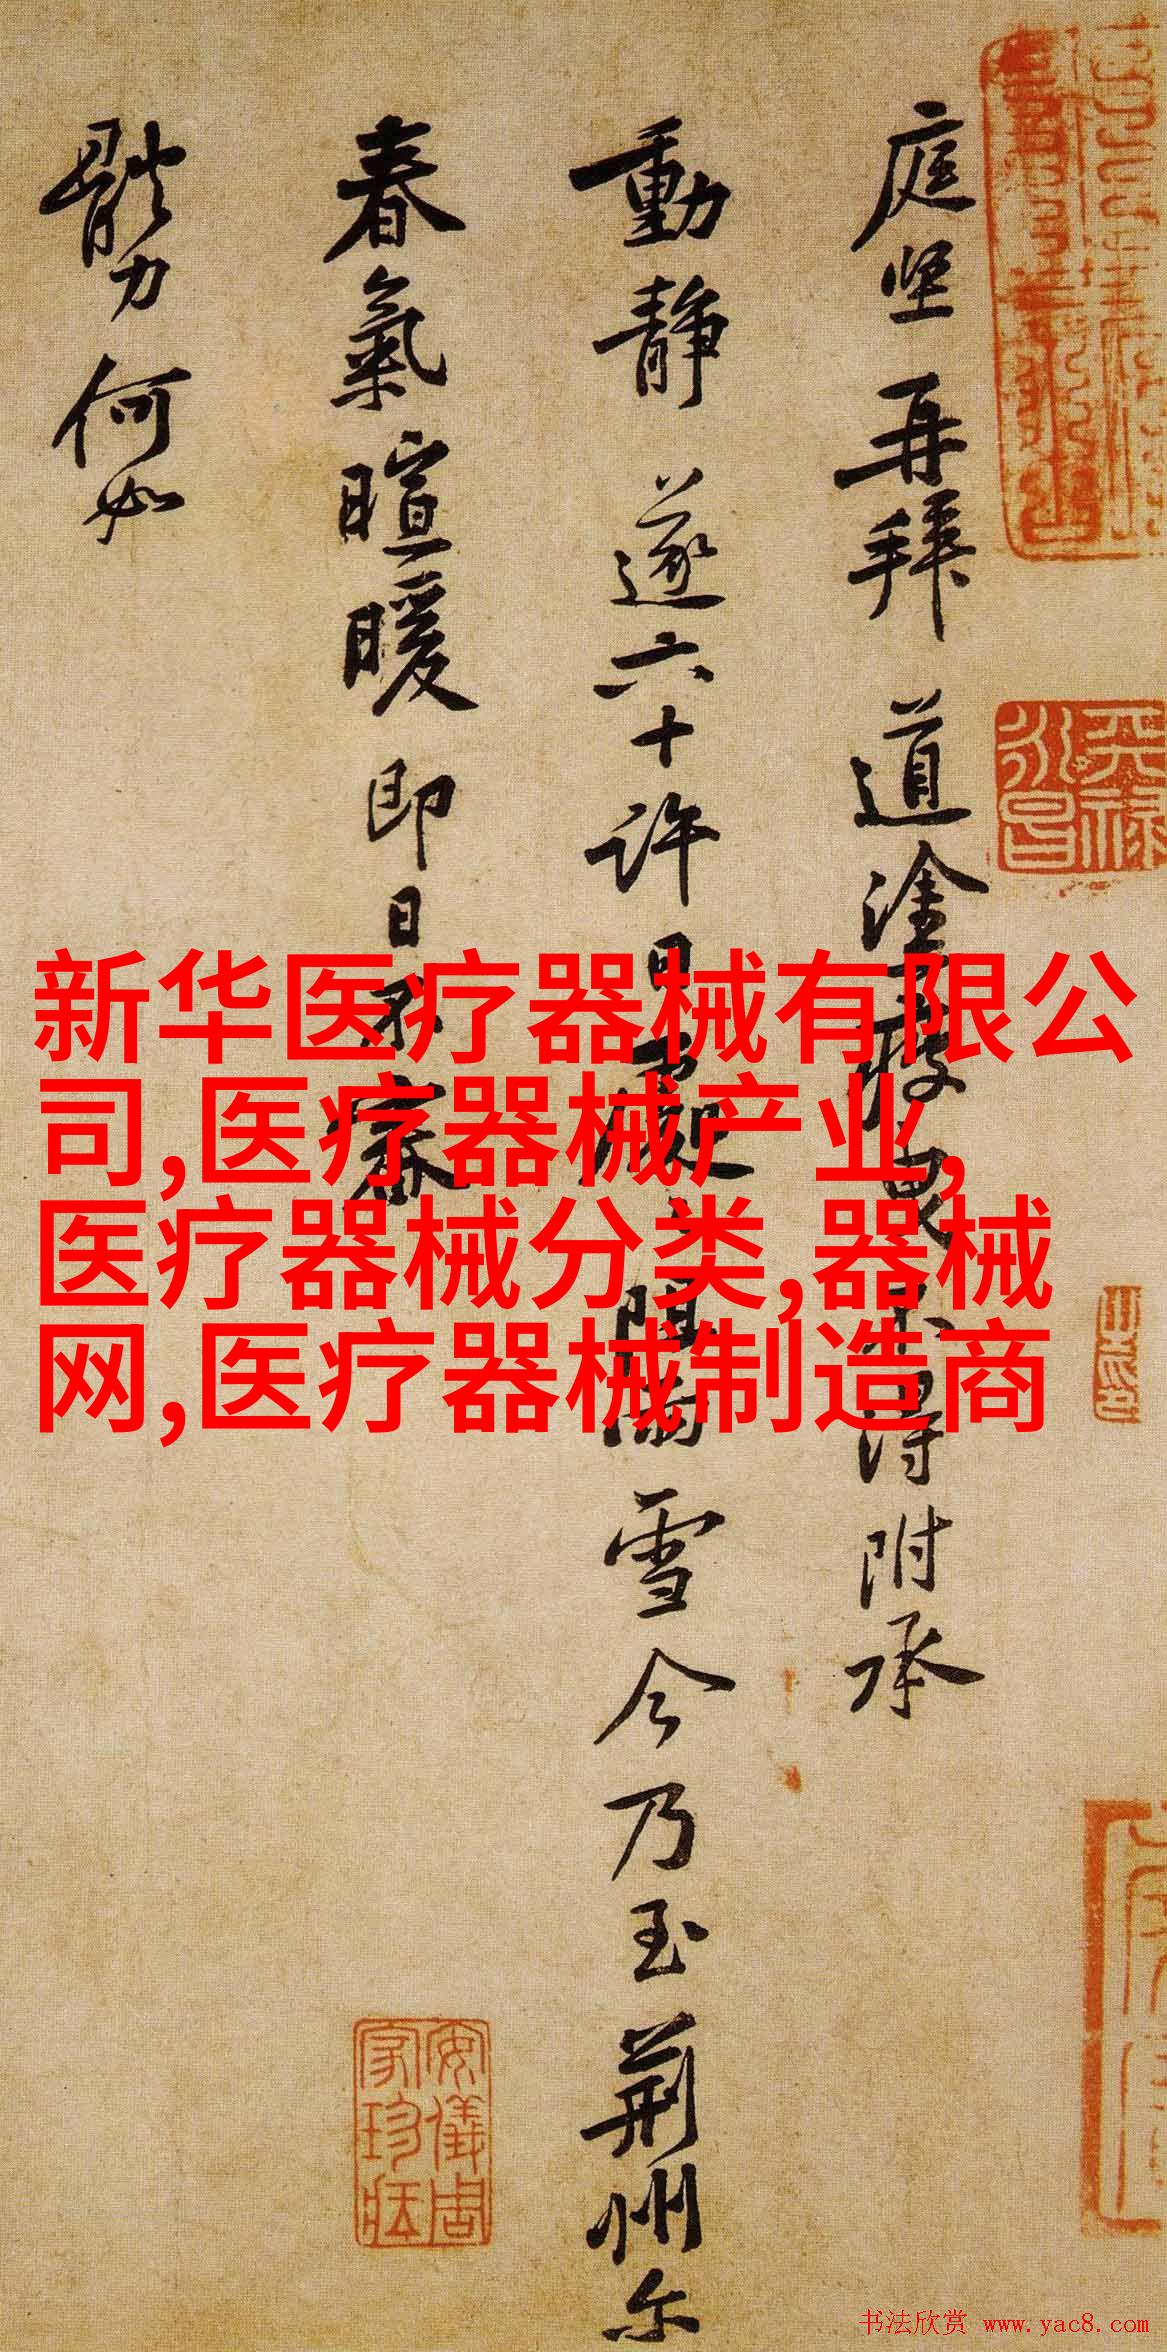 庭坚再拜道塗疲曳不得附承
動静遂六十许日季阻雪今乃至荆州尔
春氣暄暖即日不審
體力何如
新华医疗器械有限公
司,医疗器械产业,
医疗器械分类,器械
网,医疗器械制造商
天禄
永昌
安儀周
家珍蔵
书法欣赏 www.yac8.com